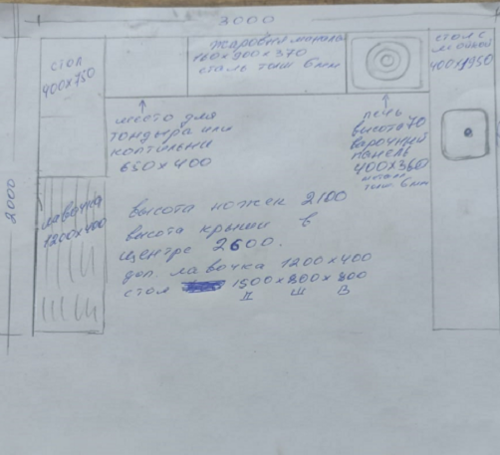 3000
стол
400х750
жаровня мангала
сталь толщ 6мм
стол с
мойкой
место для
тондыра или
коптильни
650 х 400
печь
высота 70
варочний
панель
400х360
толщ. 6мм
2000
лавочка
1200х400
высота ножек 2100
высота крыши в
центре 2600.
доп. лавочка 1200 х 400
стол 1500 х 800 х 800
Д Ш В